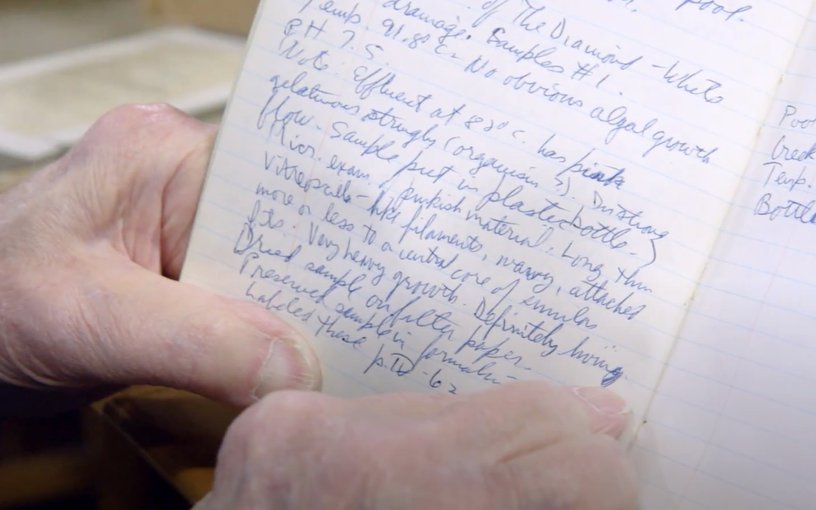 pool.
of The Diamond - White
drainage. Samples #1.
Temp. 91.8°C - No obvious algal growth
pH 7.5.
Note: Effluent at 82°C. has pink
gelatinous stringly (organism?) In strong
flow. Sample put in plastic bottle.
Micr. exam. pinkish material. Long thin
Vitreoscilla-like filaments, wavy, attached
more or less to a central core of
Very heavy growth. Definitely living
Dried sample on filter paper.
Preserved sample in formalin -
Labeled these p. IV-62
Poo
Creek
Temp.
Bottle